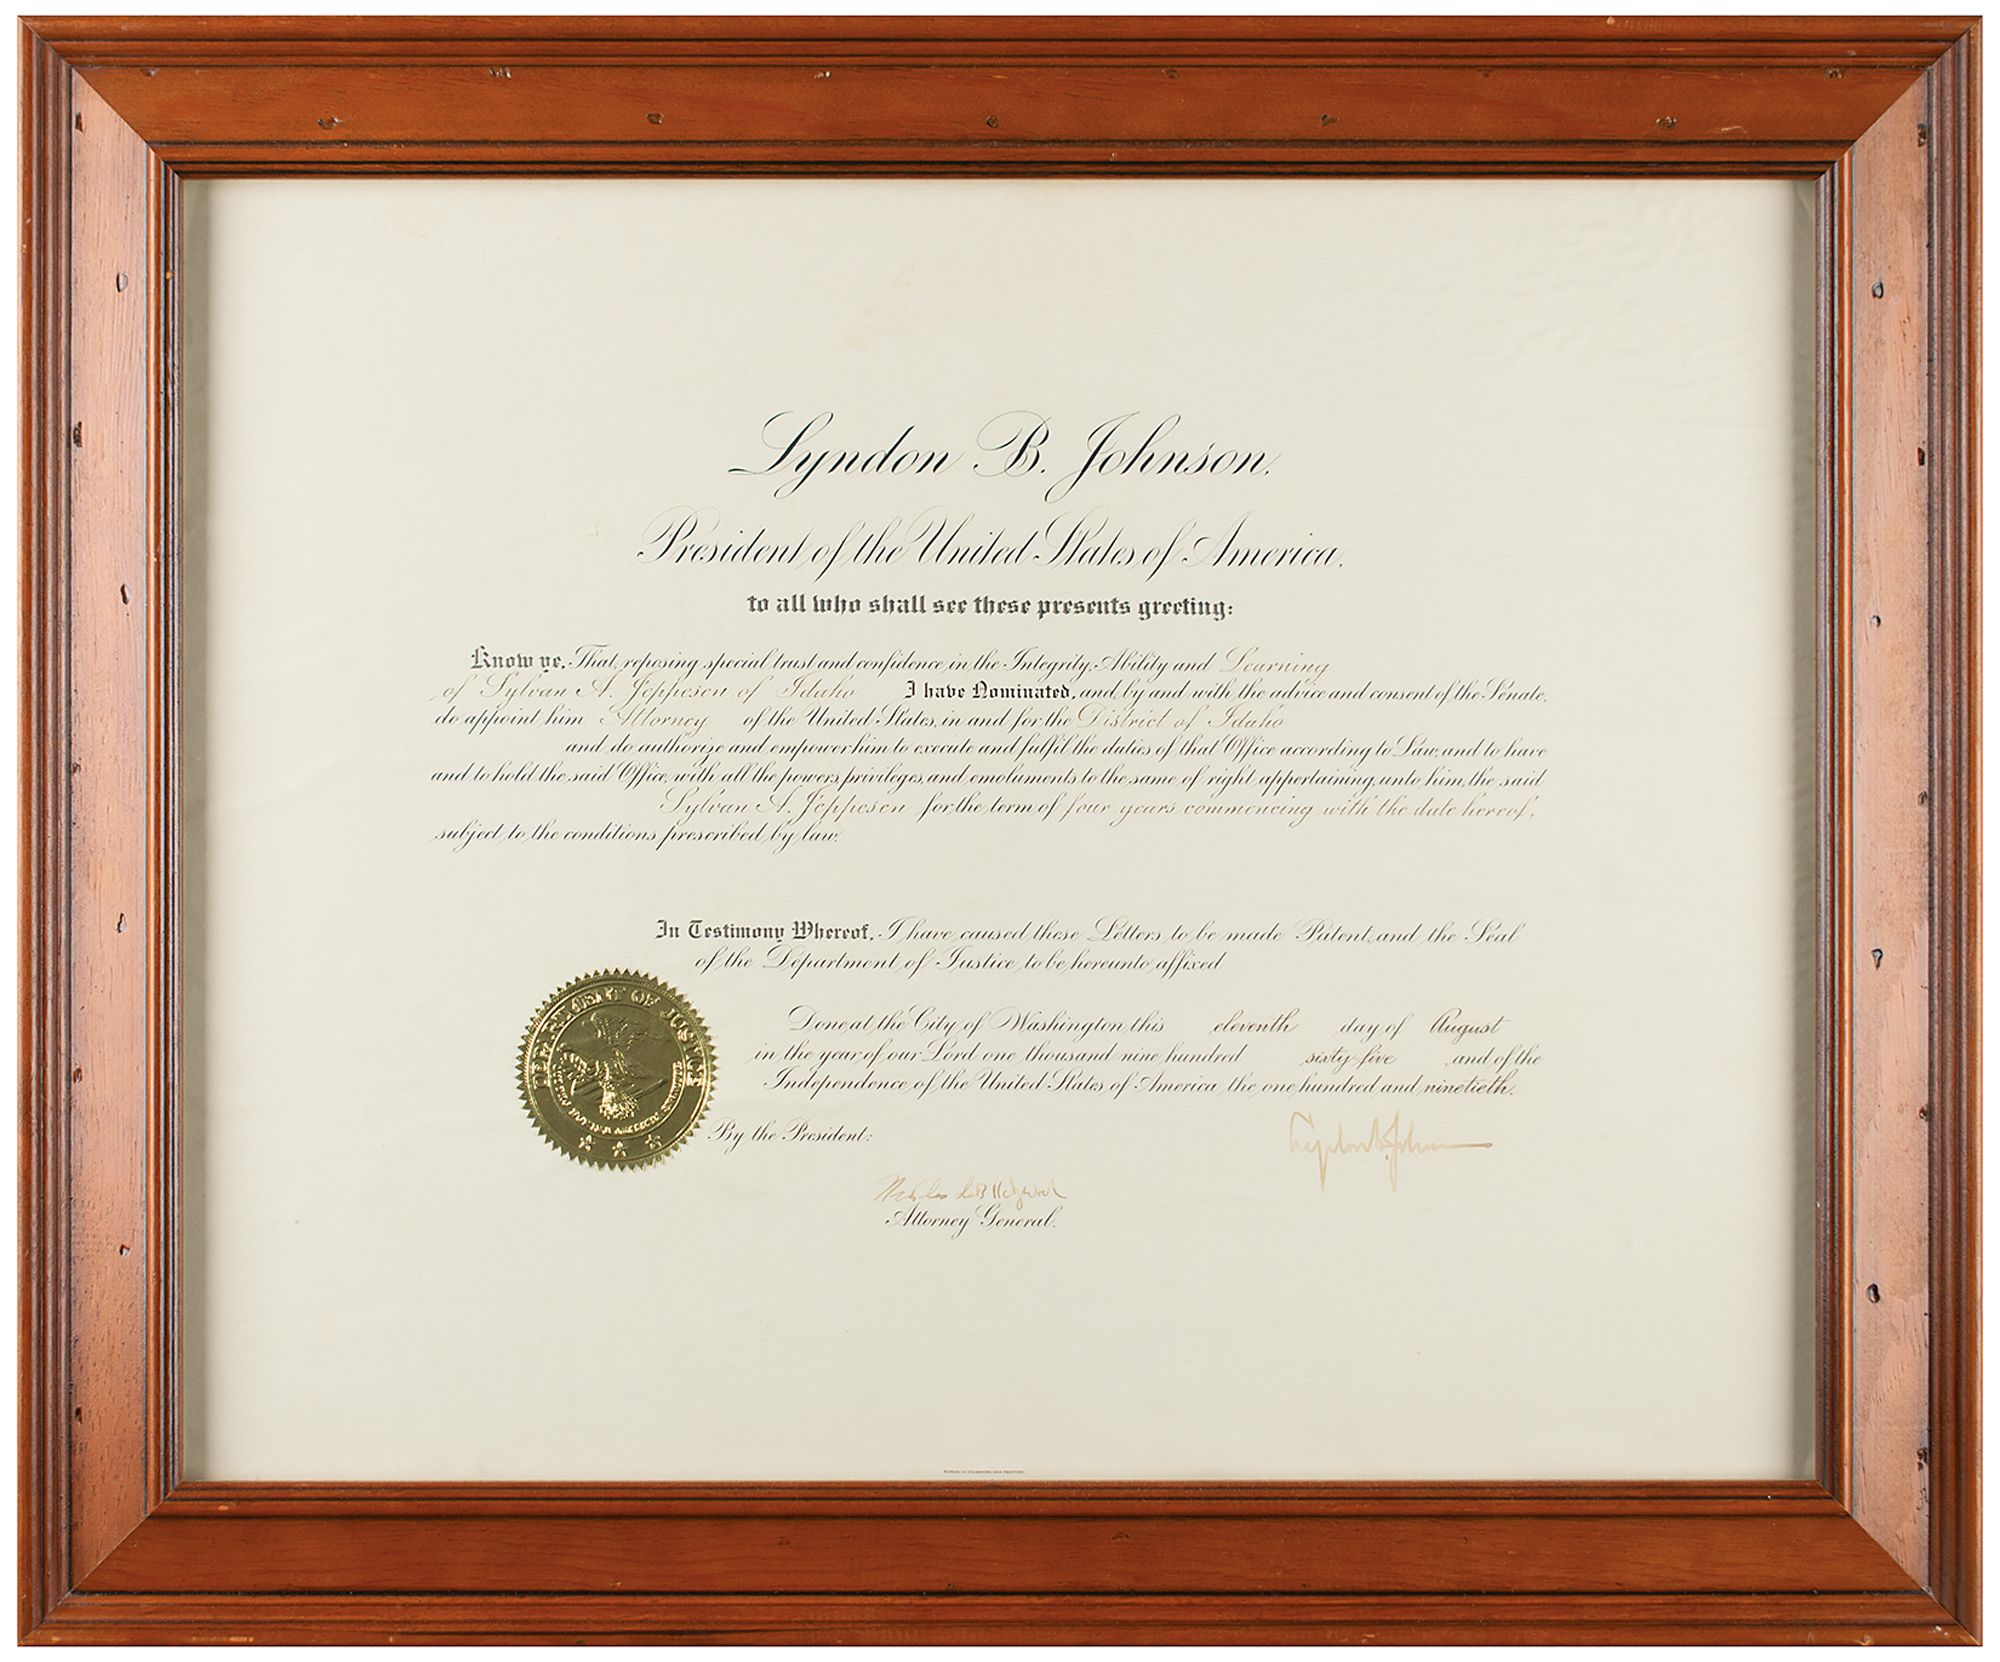 Lyndon B. Johnson,
President of the United States of America,
to all who shall see these presents greeting:
Know ye, That, reposing special trust and confidence, in the Integrity, Ability and Learning
of Sylvan A. Jeppesen of Idaho I have Nominated, and, by and with, the advice and consent of the Senate,
do appoint him Attorney of the United States, in and for the District of Idaho
and do authorize and empower him to execute and fulfil the duties of that Office according to Law, and to have
and to hold the said Office, with all the powers, privileges, and emoluments to the same of right appertaining, unto him, the said
Sylvan A. Jeppesen for the term of four years commencing with the date hereof,
subject to the conditions prescribed by law.
In Testimony Whereof, I have caused these Letters to be made Patent, and the Seal
of the Department of Justice to be hereunto affixed
DEPARTMENT OF JUSTICE
Done at the City of Washington this eleventh day of August
in the year of our Lord one thousand nine hundred sixty-five and of the
Independence of the United States of America the one hundred and ninetieth.
By the President:
Lyndon B. Johnson
Attorney General.
BUREAU OF ENGRAVING AND PRINTING